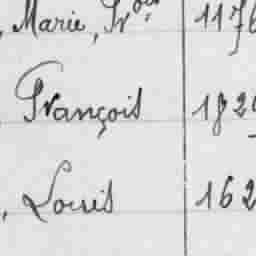 , Marie, Fr.oise 1176
François 182
, Louis 162